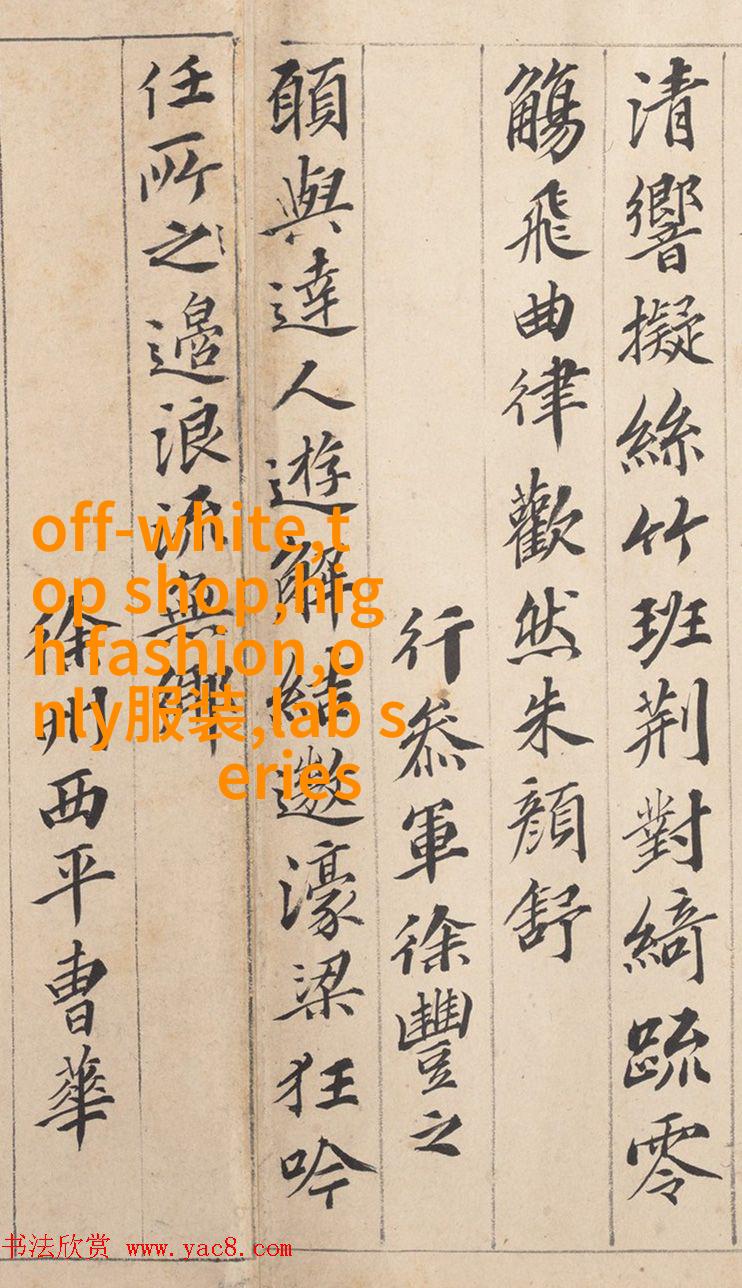 清響擬絲竹班荆對綺疏零
觴飛曲律歡然朱顏舒
行叅軍徐豐之
願與達人遊解結遨濠梁狂吟
任所之邉浪流無鄉
徐州西平曹華
off-white,t
op shop,hig
h fashion,o
nly服装,lab s
eries
书法欣赏 www.yac8.com